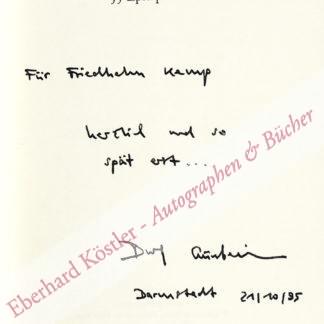 Für Friedhelm Kemp
herzlich und so
spät erst...
Durs Grünbein
Darmstadt 21/10/95
Eberhard Köstler - Autographen & Bücher